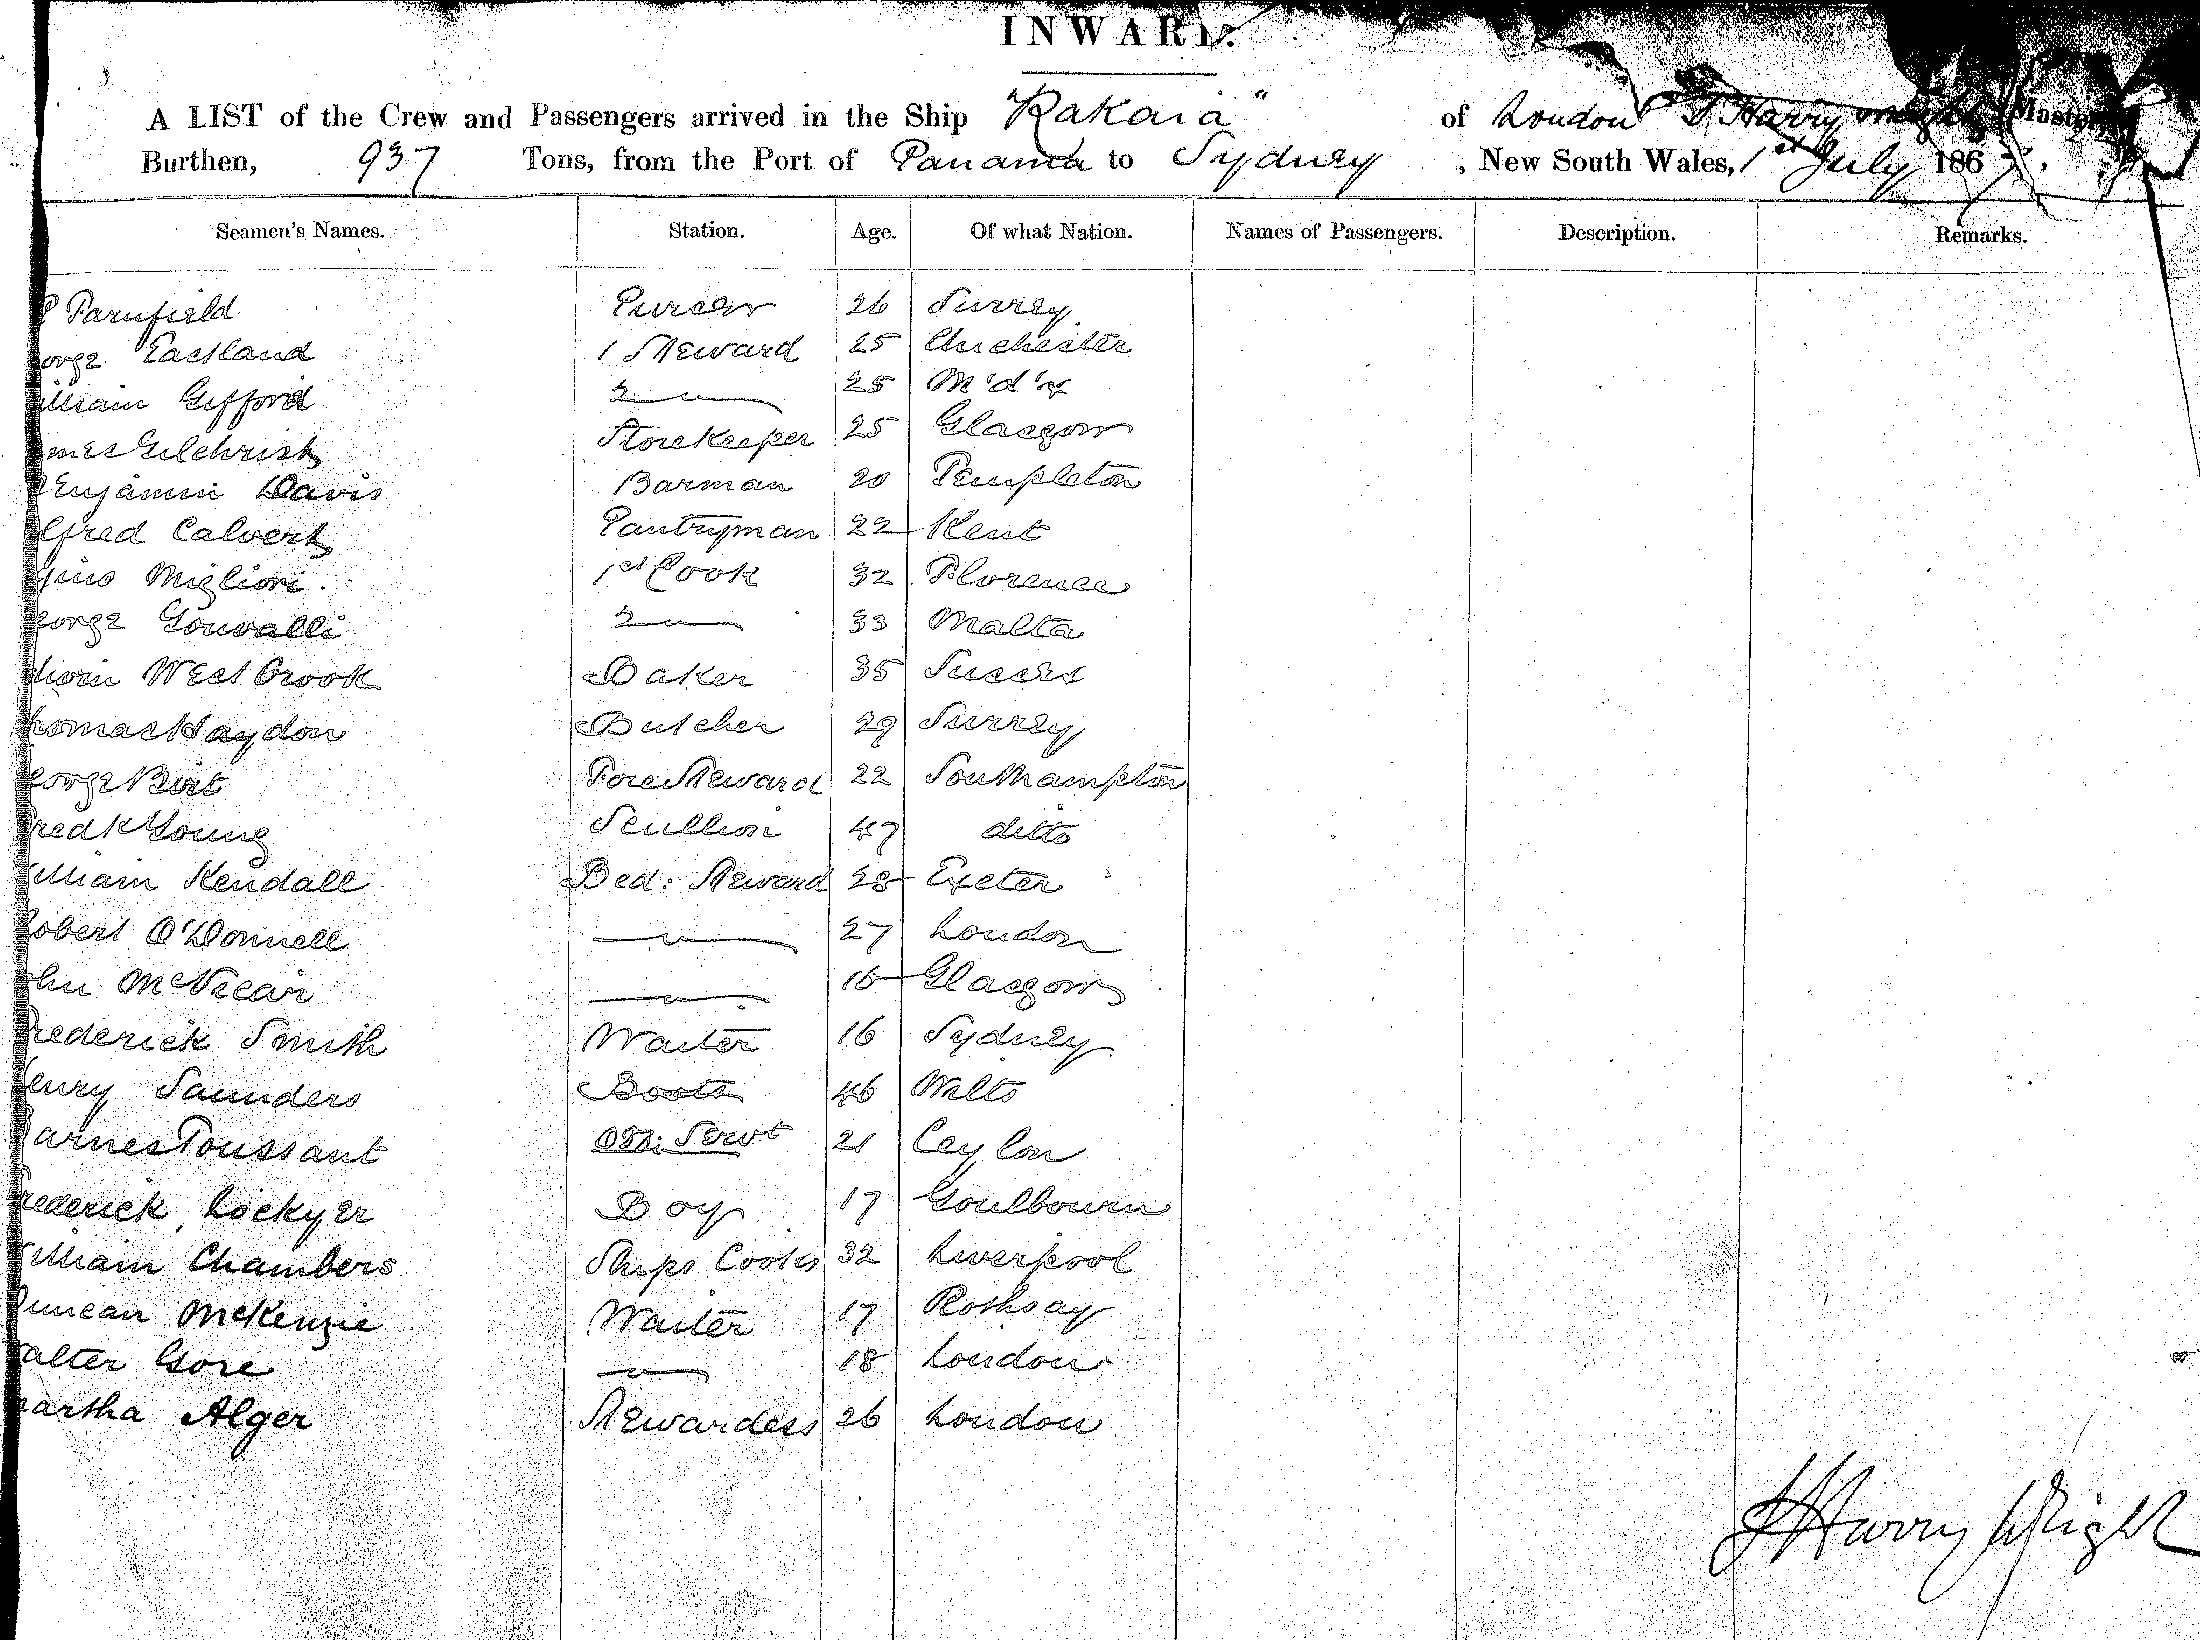 INWARD.
A LIST of the Crew and Passengers arrived in the Ship "Rakaia" of London J Harry Wright Master
Burthen, 937 Tons, from the Port of Panama to Sydney, New South Wales, 1st July 1867.
Seamen's Names. Station. Age. Of what Nation. Names of Passengers. Description. Remarks.
Parnfield Purser 26 Surrey
orge Eastland 1 Steward 25 Chichester
illiam Gifford 2 — " — 25 M'd'x
mes Gilchrist Storekeeper 25 Glasgow
Benjamin Davis Barman 20 Templeton
lfred Calvert Pantryman 22 Kent
gino Migliori 1st Cook 32 Florence
eorge Gouvalli 2 — " — 33 Malta
dwin West brook Baker 35 Sussex
homas Haydon Butcher 29 Surrey
eorge Birt Fore Steward 22 Southampton
Fredk Young Scullion 47 ditto
illiam Kendall Bed: Steward 28 Exeter
Robert O'Donnell — " — 27 London
ohn McVicar — " — 16 Glasgow
Frederick Smith Waiter 16 Sydney
Henry Saunders Boots 46 Wilts
Barnes Toussant Off: Servt 21 Ceylon
Frederick Lockyer Boy 17 Goulbourn
William Chambers Ships Cook 32 Liverpool
Duncan McKenzie Waiter 17 Rothsay
alter Gore — " — 18 London
artha Alger Stewardess 26 London
J Harry Wright